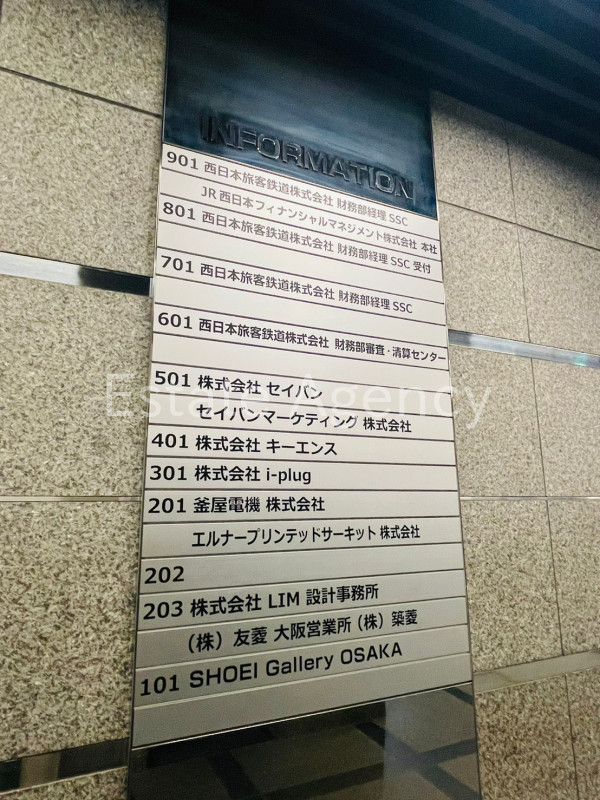 INFORMATION
901 西日本旅客鉄道株式会社 財務部経理 SSC
JR 西日本フィナンシャルマネジメント株式会社 本社
801 西日本旅客鉄道株式会社 財務部経理 SSC 受付
701 西日本旅客鉄道株式会社 財務部経理 SSC
601 西日本旅客鉄道株式会社 財務部審査・清算センター
501 株式会社 セイバン
セイバンマーケティング 株式会社
Estate Agency
401 株式会社 キーエンス
301 株式会社 i-plug
201 釜屋電機 株式会社
エルナープリンテッドサーキット 株式会社
202
203 株式会社 LIM 設計事務所
（株）友菱 大阪営業所（株）築菱
101 SHOEI Gallery OSAKA